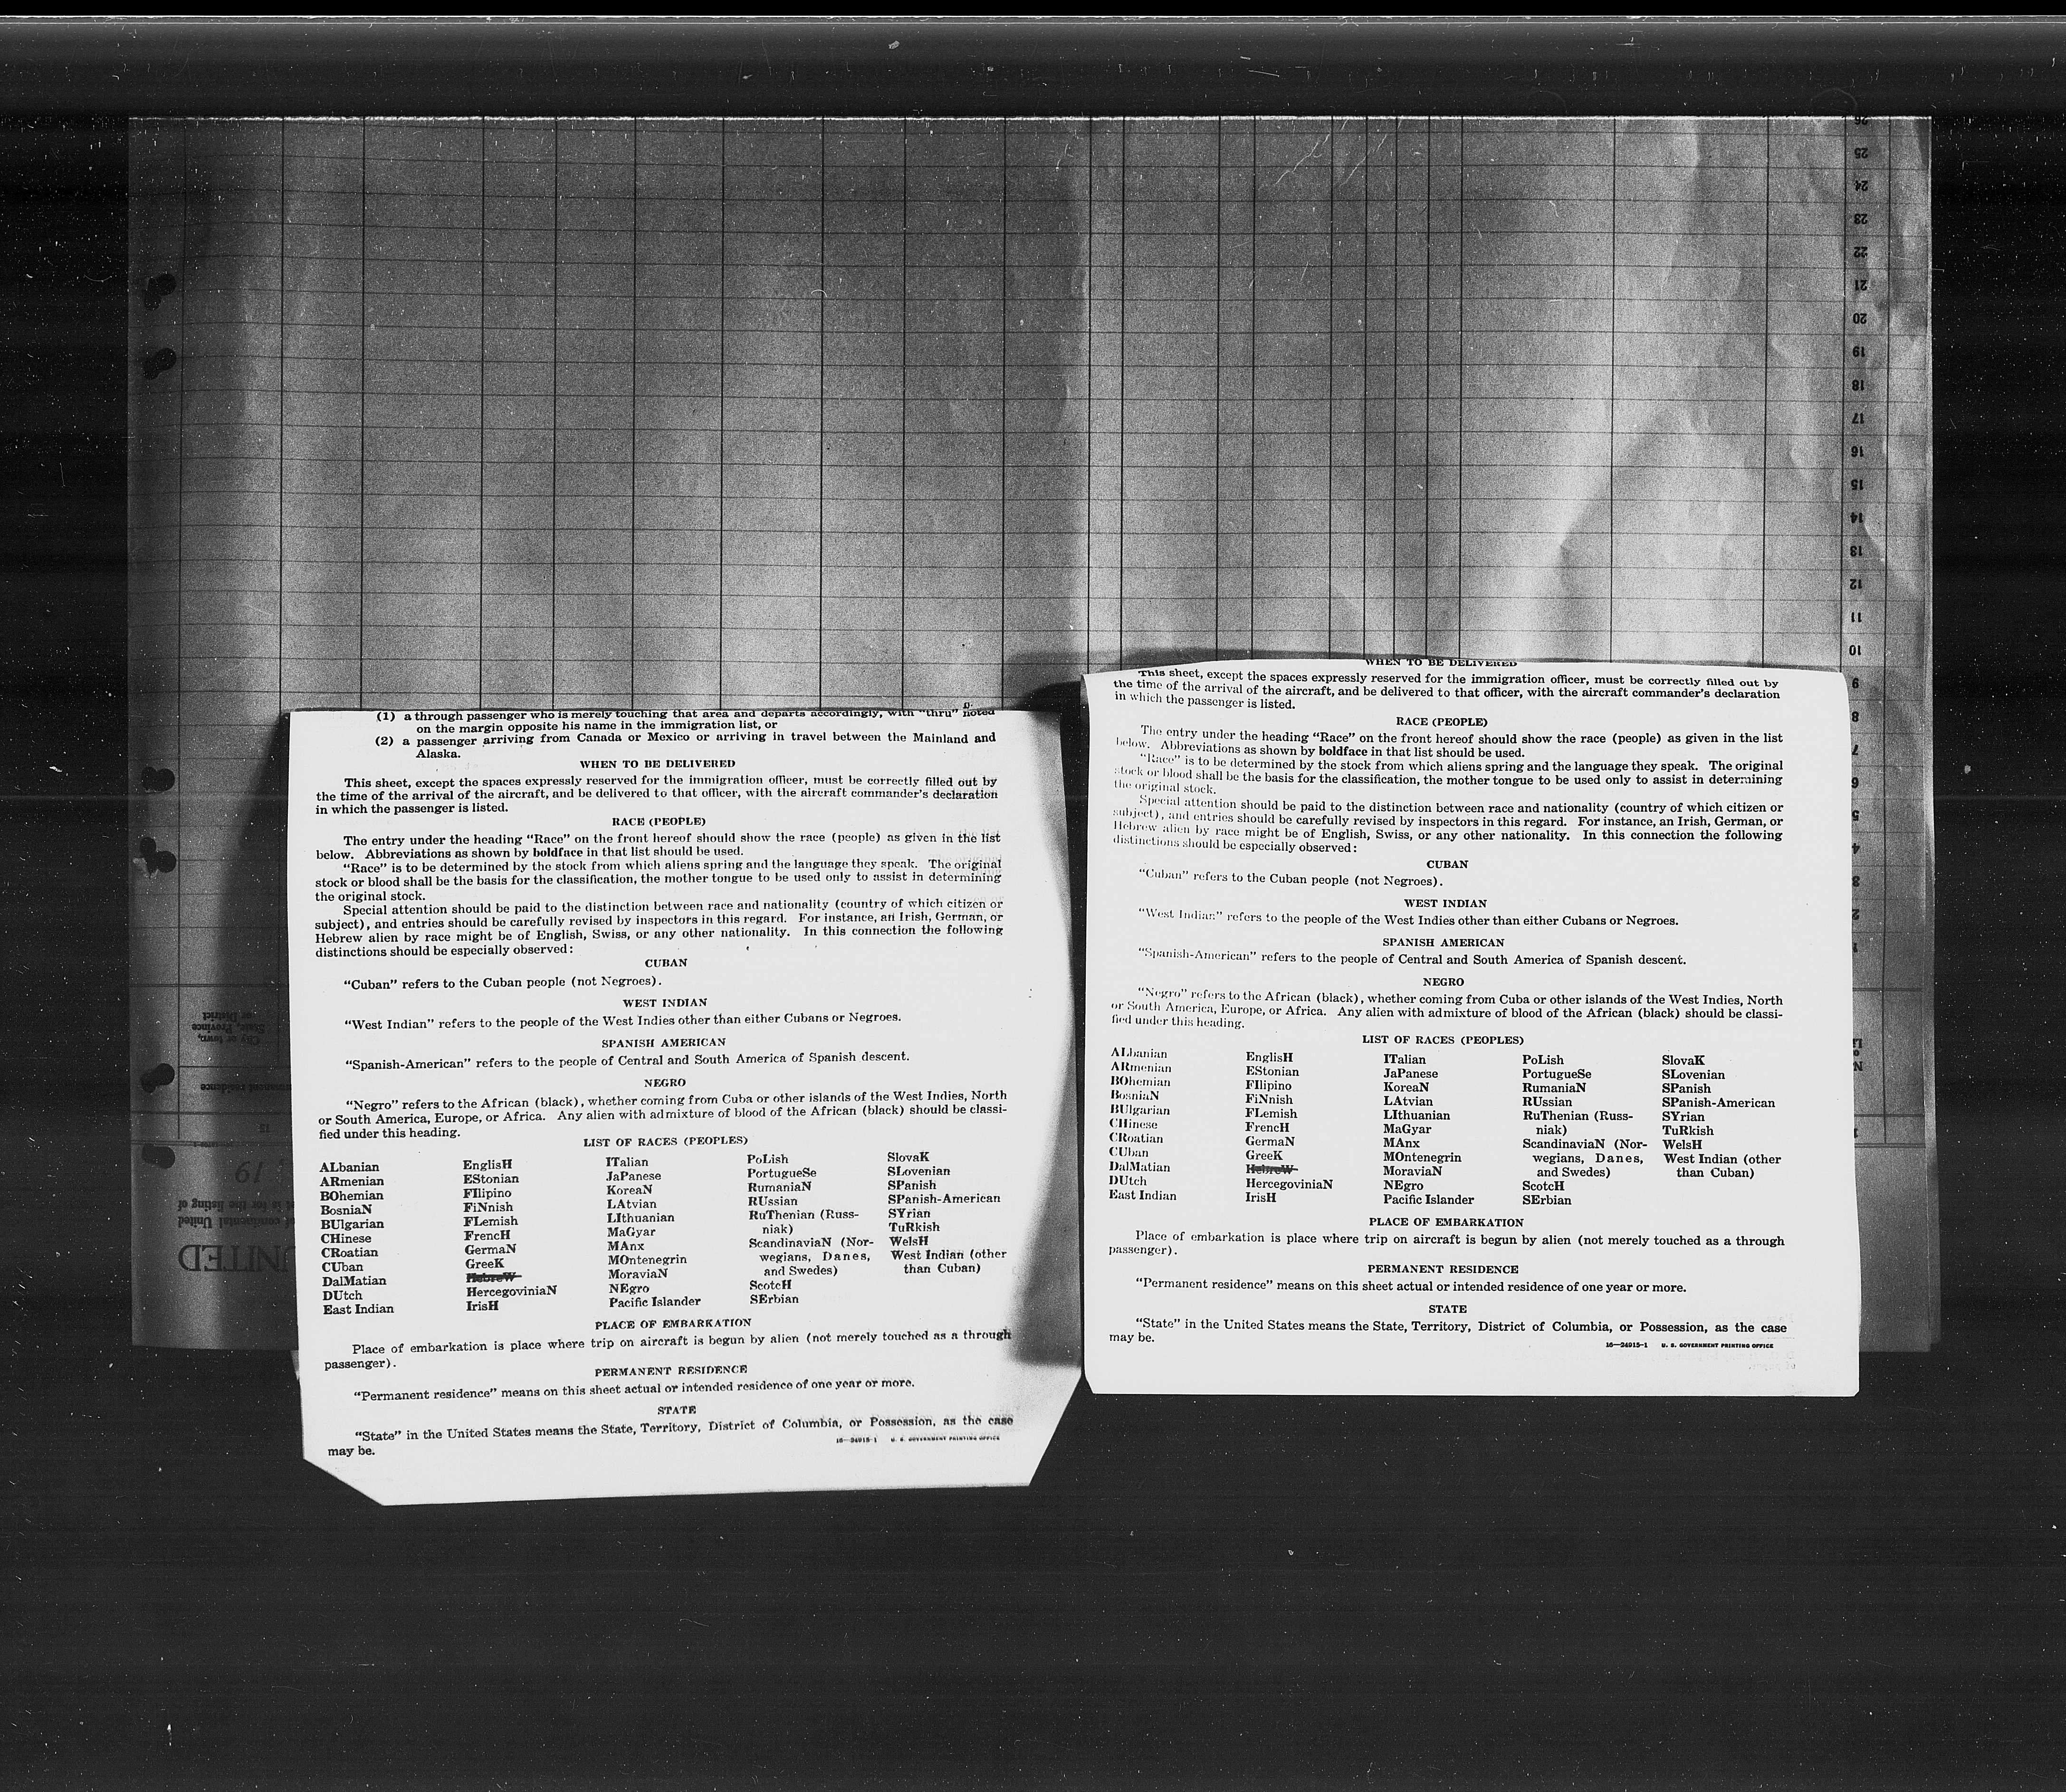 (1) a through passenger who is merely touching that area and departs accordingly, with "thru" noted
on the margin opposite his name in the immigration list, or
(2) a passenger arriving from Canada or Mexico or arriving in travel between the Mainland and
Alaska.
WHEN TO BE DELIVERED
This sheet, except the spaces expressly reserved for the immigration officer, must be correctly filled out by
the time of the arrival of the aircraft, and be delivered to that officer, with the aircraft commander's declaration
in which the passenger is listed.
RACE (PEOPLE)
The entry under the heading "Race" on the front hereof should show the race (people) as given in the list
below. Abbreviations as shown by boldface in that list should be used.
"Race" is to be determined by the stock from which aliens spring and the language they speak. The original
stock or blood shall be the basis for the classification, the mother tongue to be used only to assist in determining
the original stock.
Special attention should be paid to the distinction between race and nationality (country of which citizen or
subject), and entries should be carefully revised by inspectors in this regard. For instance, an Irish, German, or
Hebrew alien by race might be of English, Swiss, or any other nationality. In this connection the following
distinctions should be especially observed:
CUBAN
"Cuban" refers to the Cuban people (not Negroes).
WEST INDIAN
"West Indian" refers to the people of the West Indies other than either Cubans or Negroes.
SPANISH AMERICAN
"Spanish-American" refers to the people of Central and South America of Spanish descent.
NEGRO
"Negro" refers to the African (black), whether coming from Cuba or other islands of the West Indies, North
or South America, Europe, or Africa. Any alien with admixture of blood of the African (black) should be classi-
fied under this heading.
LIST OF RACES (PEOPLES)
ALbanian
ARmenian
BOhemian
BosniaN
BUlgarian
CHinese
CRoatian
CUban
DalMatian
DUtch
East Indian
EnglisH
EStonian
FIlipino
FiNnish
FLemish
FrencH
GermaN
GreeK
HebreW
HercegoviniaN
IrisH
ITalian
JaPanese
KoreaN
LAtvian
LIthuanian
MaGyar
MAnx
MOntenegrin
MoraviaN
NEgro
Pacific Islander
PoLish
PortugueSe
RumaniaN
RUssian
RuThenian (Russ-
niak)
ScandinaviaN (Nor-
wegians, Danes,
and Swedes)
ScotcH
SErbian
SlovaK
SLovenian
SPanish
SPanish-American
SYrian
TuRkish
WelsH
West Indian (other
than Cuban)
PLACE OF EMBARKATION
Place of embarkation is place where trip on aircraft is begun by alien (not merely touched as a through
passenger).
PERMANENT RESIDENCE
"Permanent residence" means on this sheet actual or intended residence of one year or more.
STATE
"State" in the United States means the State, Territory, District of Columbia, or Possession, as the case
may be.
16—24915-1 U. S. GOVERNMENT PRINTING OFFICE
WHEN TO BE DELIVERED
This sheet, except the spaces expressly reserved for the immigration officer, must be correctly filled out by
the time of the arrival of the aircraft, and be delivered to that officer, with the aircraft commander's declaration
in which the passenger is listed.
RACE (PEOPLE)
The entry under the heading "Race" on the front hereof should show the race (people) as given in the list
below. Abbreviations as shown by boldface in that list should be used.
"Race" is to be determined by the stock from which aliens spring and the language they speak. The original
stock or blood shall be the basis for the classification, the mother tongue to be used only to assist in determining
the original stock.
Special attention should be paid to the distinction between race and nationality (country of which citizen or
subject), and entries should be carefully revised by inspectors in this regard. For instance, an Irish, German, or
Hebrew alien by race might be of English, Swiss, or any other nationality. In this connection the following
distinctions should be especially observed:
CUBAN
"Cuban" refers to the Cuban people (not Negroes).
WEST INDIAN
"West Indian" refers to the people of the West Indies other than either Cubans or Negroes.
SPANISH AMERICAN
"Spanish-American" refers to the people of Central and South America of Spanish descent.
NEGRO
"Negro" refers to the African (black), whether coming from Cuba or other islands of the West Indies, North
or South America, Europe, or Africa. Any alien with admixture of blood of the African (black) should be classi-
fied under this heading.
LIST OF RACES (PEOPLES)
ALbanian
ARmenian
BOhemian
BosniaN
BUlgarian
CHinese
CRoatian
CUban
DalMatian
DUtch
East Indian
EnglisH
EStonian
FIlipino
FiNnish
FLemish
FrencH
GermaN
GreeK
HebreW
HercegoviniaN
IrisH
ITalian
JaPanese
KoreaN
LAtvian
LIthuanian
MaGyar
MAnx
MOntenegrin
MoraviaN
NEgro
Pacific Islander
PoLish
PortugueSe
RumaniaN
RUssian
RuThenian (Russ-
niak)
ScandinaviaN (Nor-
wegians, Danes,
and Swedes)
ScotcH
SErbian
SlovaK
SLovenian
SPanish
SPanish-American
SYrian
TuRkish
WelsH
West Indian (other
than Cuban)
PLACE OF EMBARKATION
Place of embarkation is place where trip on aircraft is begun by alien (not merely touched as a through
passenger).
PERMANENT RESIDENCE
"Permanent residence" means on this sheet actual or intended residence of one year or more.
STATE
"State" in the United States means the State, Territory, District of Columbia, or Possession, as the case
may be.
16—24915-1 U. S. GOVERNMENT PRINTING OFFICE
26
25
24
23
22
21
20
19
18
17
16
15
14
13
12
11
10
9
8
7
6
5
4
3
2
1
or District
State, Province,
City or town,
15
, 19
of continental United
UNITED